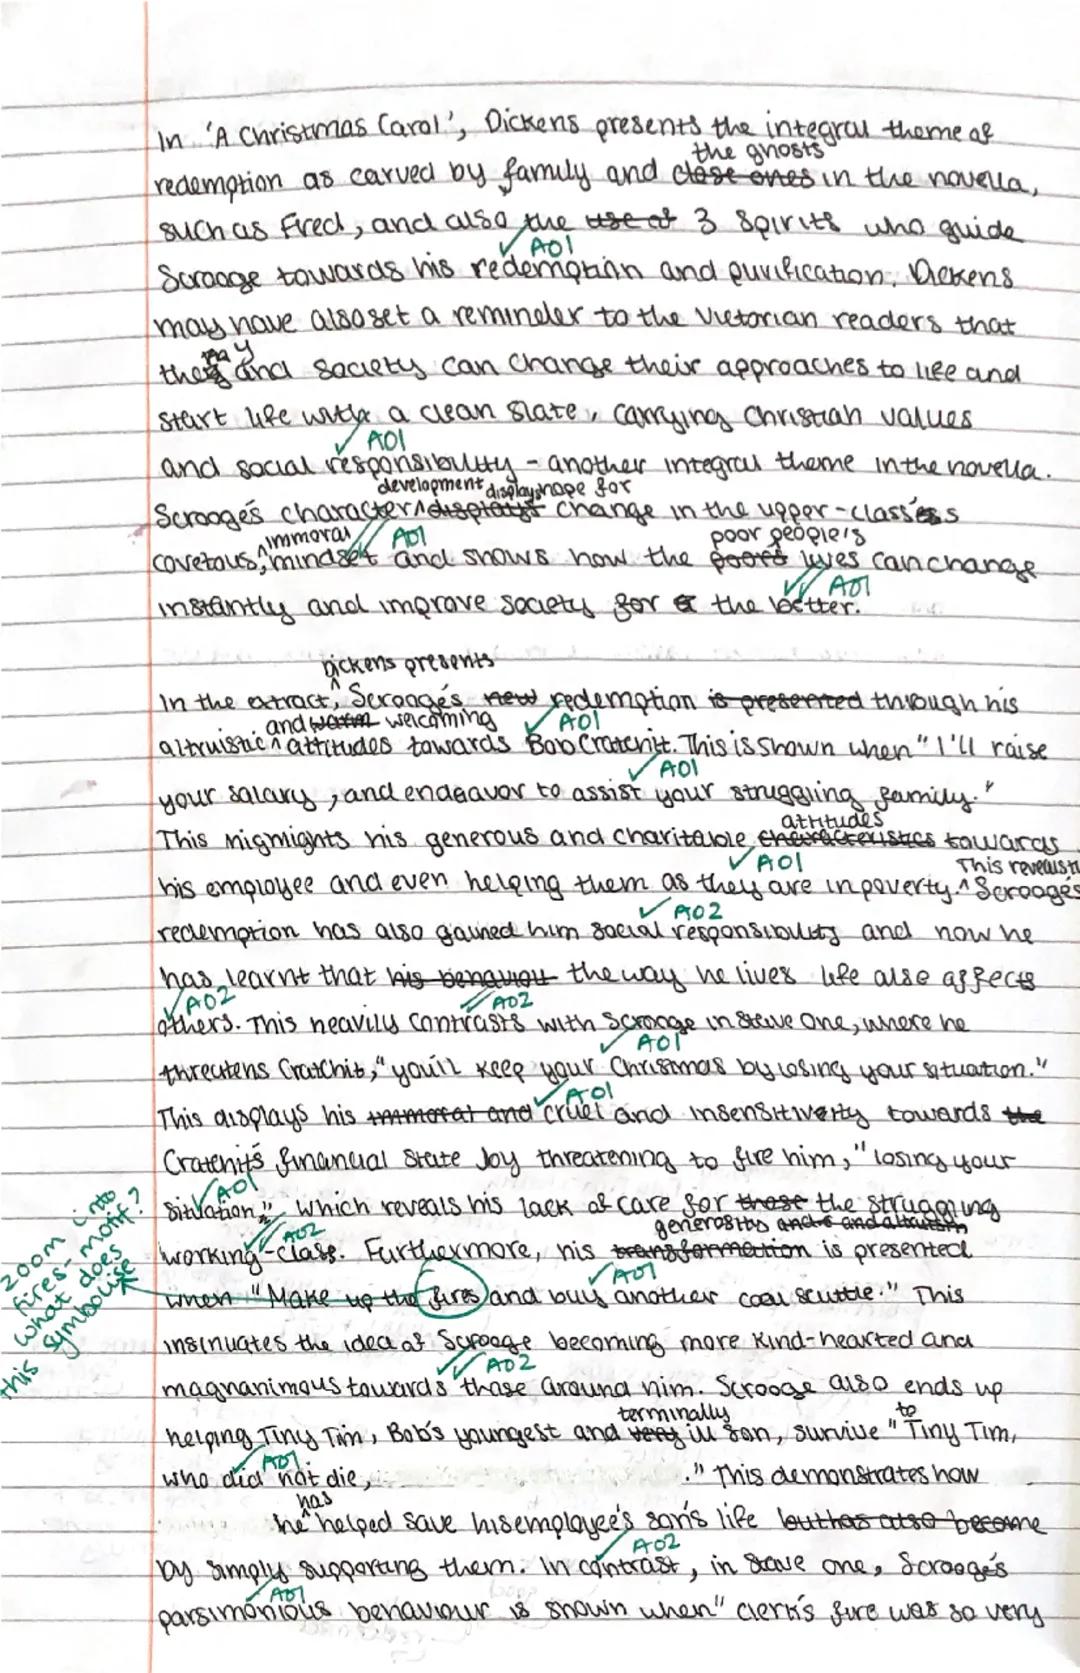 In 'A Christmas Carol', Dickens presents the integral theme of
the ghosts
redemption as carved by family and close ones in the novella,
such as Fred, and also the use of 3 spirits who guide
✓ AO1
Scrooge towards his redemption and purification. Dickens
may have also set a reminder to the Victorian readers that
may
they and society can change their approaches to life and
start life with a clean slate, carrying Christian values
✓ AO1
and social responsibility - another integral theme in the novella.
development displays hope for
Scrooge's character ^ displays change in the upper-class's
immoral ✓✓ AO1 poor people's
covetous, ^ mindset and shows how the poors lives can change
✓✓ AO1
instantly and improve society for a the better.
Dickens presents
In the extract, ^ Scrooge's new redemption is presented through his
and warm welcoming ✓ AO1
altruistic ^ attitudes towards Bob Cratchit. This is shown when "I'll raise
✓ AO1
your salary, and endeavor to assist your struggling family."
attitudes
This highlights his generous and charitable characteristics towards
✓ AO1 This reveals
his employee and even helping them as they are in poverty. ^ Scrooge's
✓ AO2
redemption has also gained him social responsibility and now he
has learnt that his behaviou the way he lives life alse affects
✓ AO2 ✓ AO2
others. This heavily contrasts with Scrooge in Stave One, where he
✓ AO1
threatens Cratchit, "you'll keep your Christmas by losing your situation."
✓ AO1
This displays his immoral and cruel and insensitiverty towards the
Cratchit's financial state by threatening to fire him, "losing your
✓ AO1
situation", which reveals his lack of care for those the struggling
✓✓ AO2 generosity
working-class. Furthermore, his transformation is presented
✓ AO1
when "Make up the fires and buy another coal scuttle." This
zoom into
fires - motif?
what does
this symbolise
insinuates the idea of Scrooge becoming more kind-hearted and
✓✓ AO2
magnanimous towards those around him. Scrooge also ends up
terminally to
helping Tiny Tim, Bob's youngest and very ill son, survive "Tiny Tim,
✓ AO1
who did not die, ." This demonstrates how
has
he ^ helped save his employee's son's life but has also become
✓ AO2
by simply supporting them. In contrast, in Stave one, Scrooge's
✓ AO1
parsimonious behaviour is shown when "clerk's fire was so very